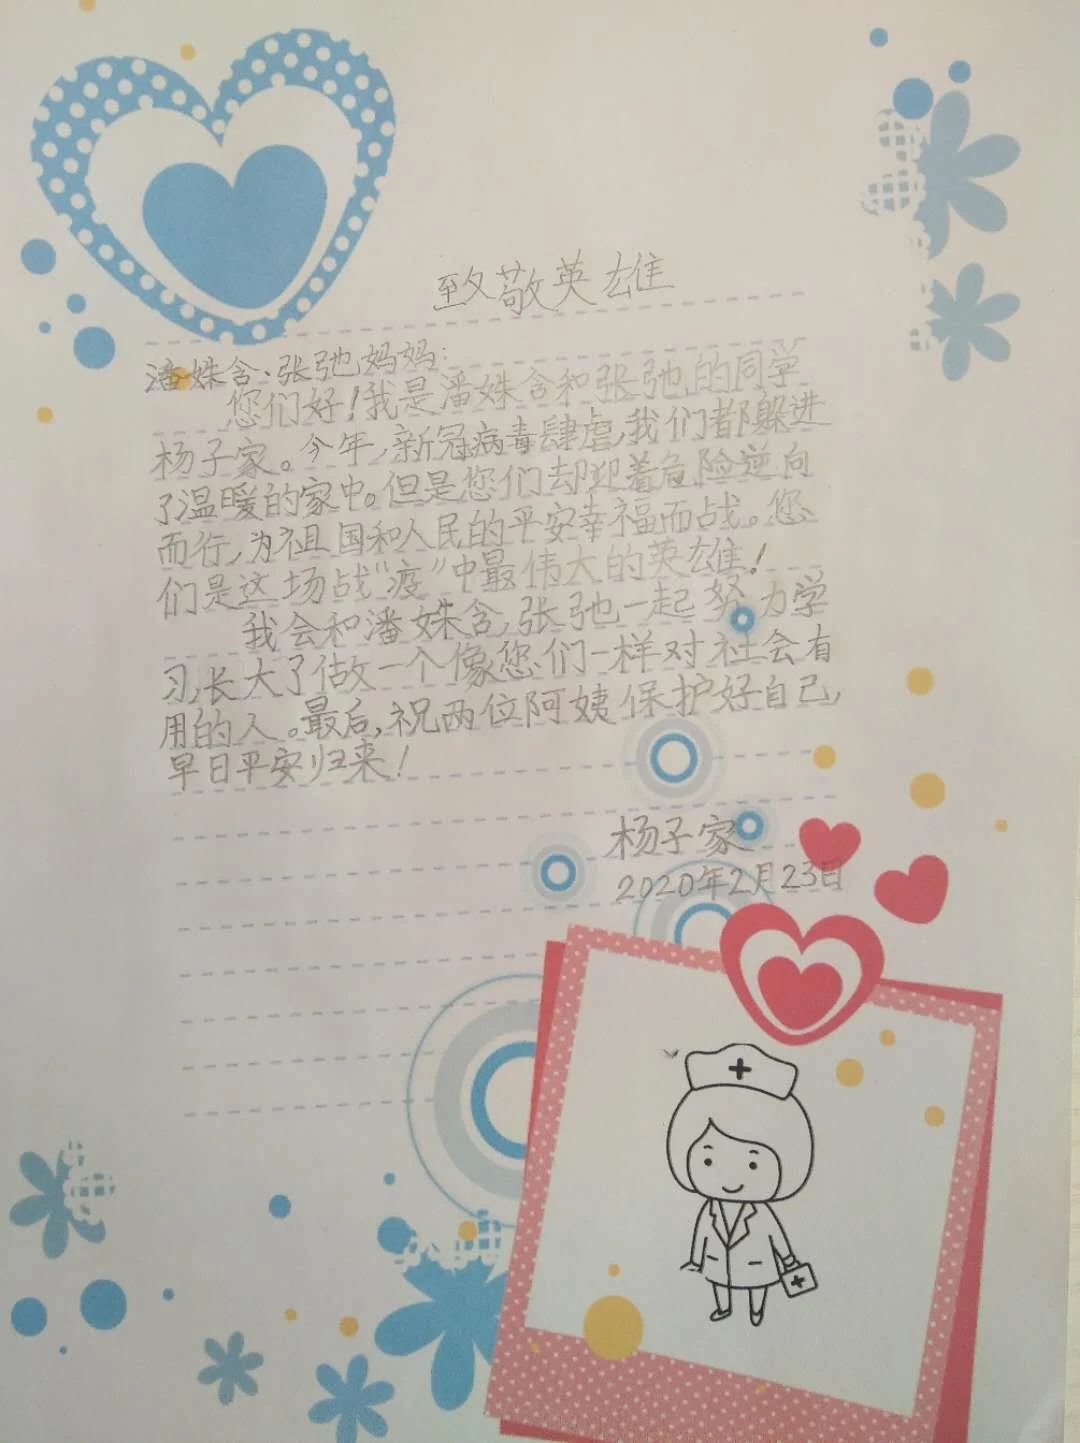 致敬英雄
潘姝含、张弛妈妈:
您们好!我是潘姝含和张弛的同学
杨子家。今年,新冠病毒肆虐,我们都躲进
了温暖的家中。但是您们却迎着危险逆向
而行,为祖国和人民的平安幸福而战。您
们是这场战“疫”中最伟大的英雄!
我会和潘姝含,张弛一起努力学
习,长大了做一个像您们一样对社会有
用的人。最后,祝两位阿姨保护好自己,
早日平安归来!
杨子家
2020年2月23日